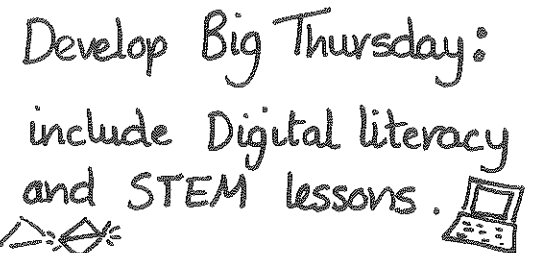 Develop Big Thursday:
include Digital literacy
and STEM lessons.